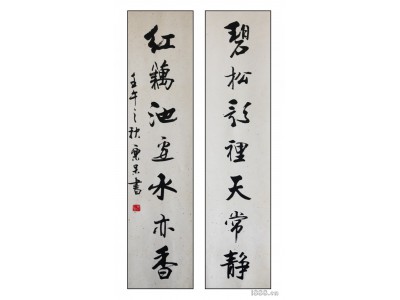 碧松影裡天常靜
紅藕池邊水亦香
壬午之秋書